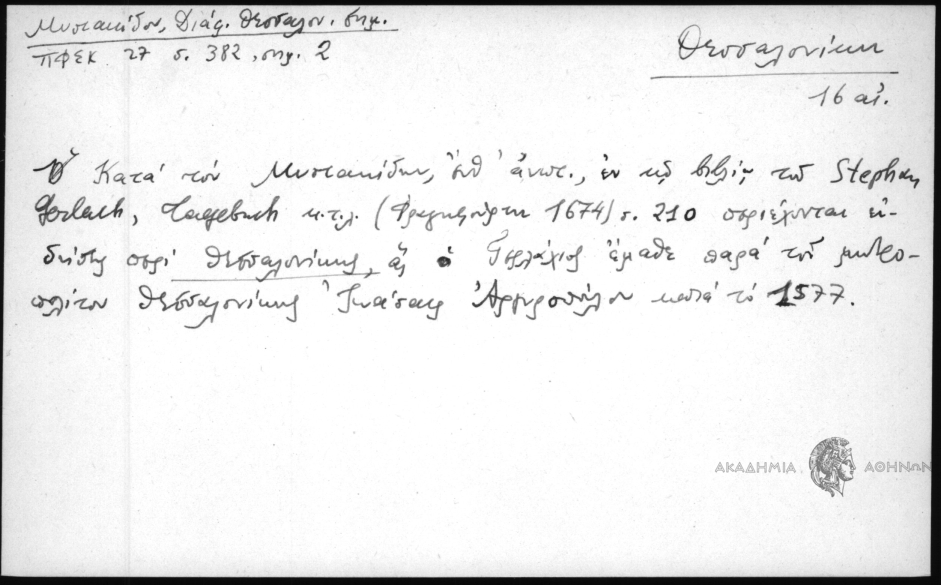 Μυστακίδου, Διάφ. Θεσσαλον. σημ.
ΠΦΣΚ 27 σ. 382, σημ. 2
Θεσσαλονίκη
16 αἰ.
Κατά τόν Μυστακίδην, ἔνθ' ἀνωτ., ἐν τῷ βιβλίῳ τοῦ Stephan
Gerlach, Tagebuch κ.τ.λ. (Φραγκφούρτη 1674) σ. 210 περιέχονται εἰ-
δήσεις περί Θεσσαλονίκης, ἅς ὁ Γερλάχιος ἔμαθε παρά τοῦ μητρο-
πολίτου Θεσσαλονίκης Ἰωάσαφ Ἀργυροπούλου κατά τό 1577.
ΑΚΑΔΗΜΙΑ ΑΘΗΝΩΝ